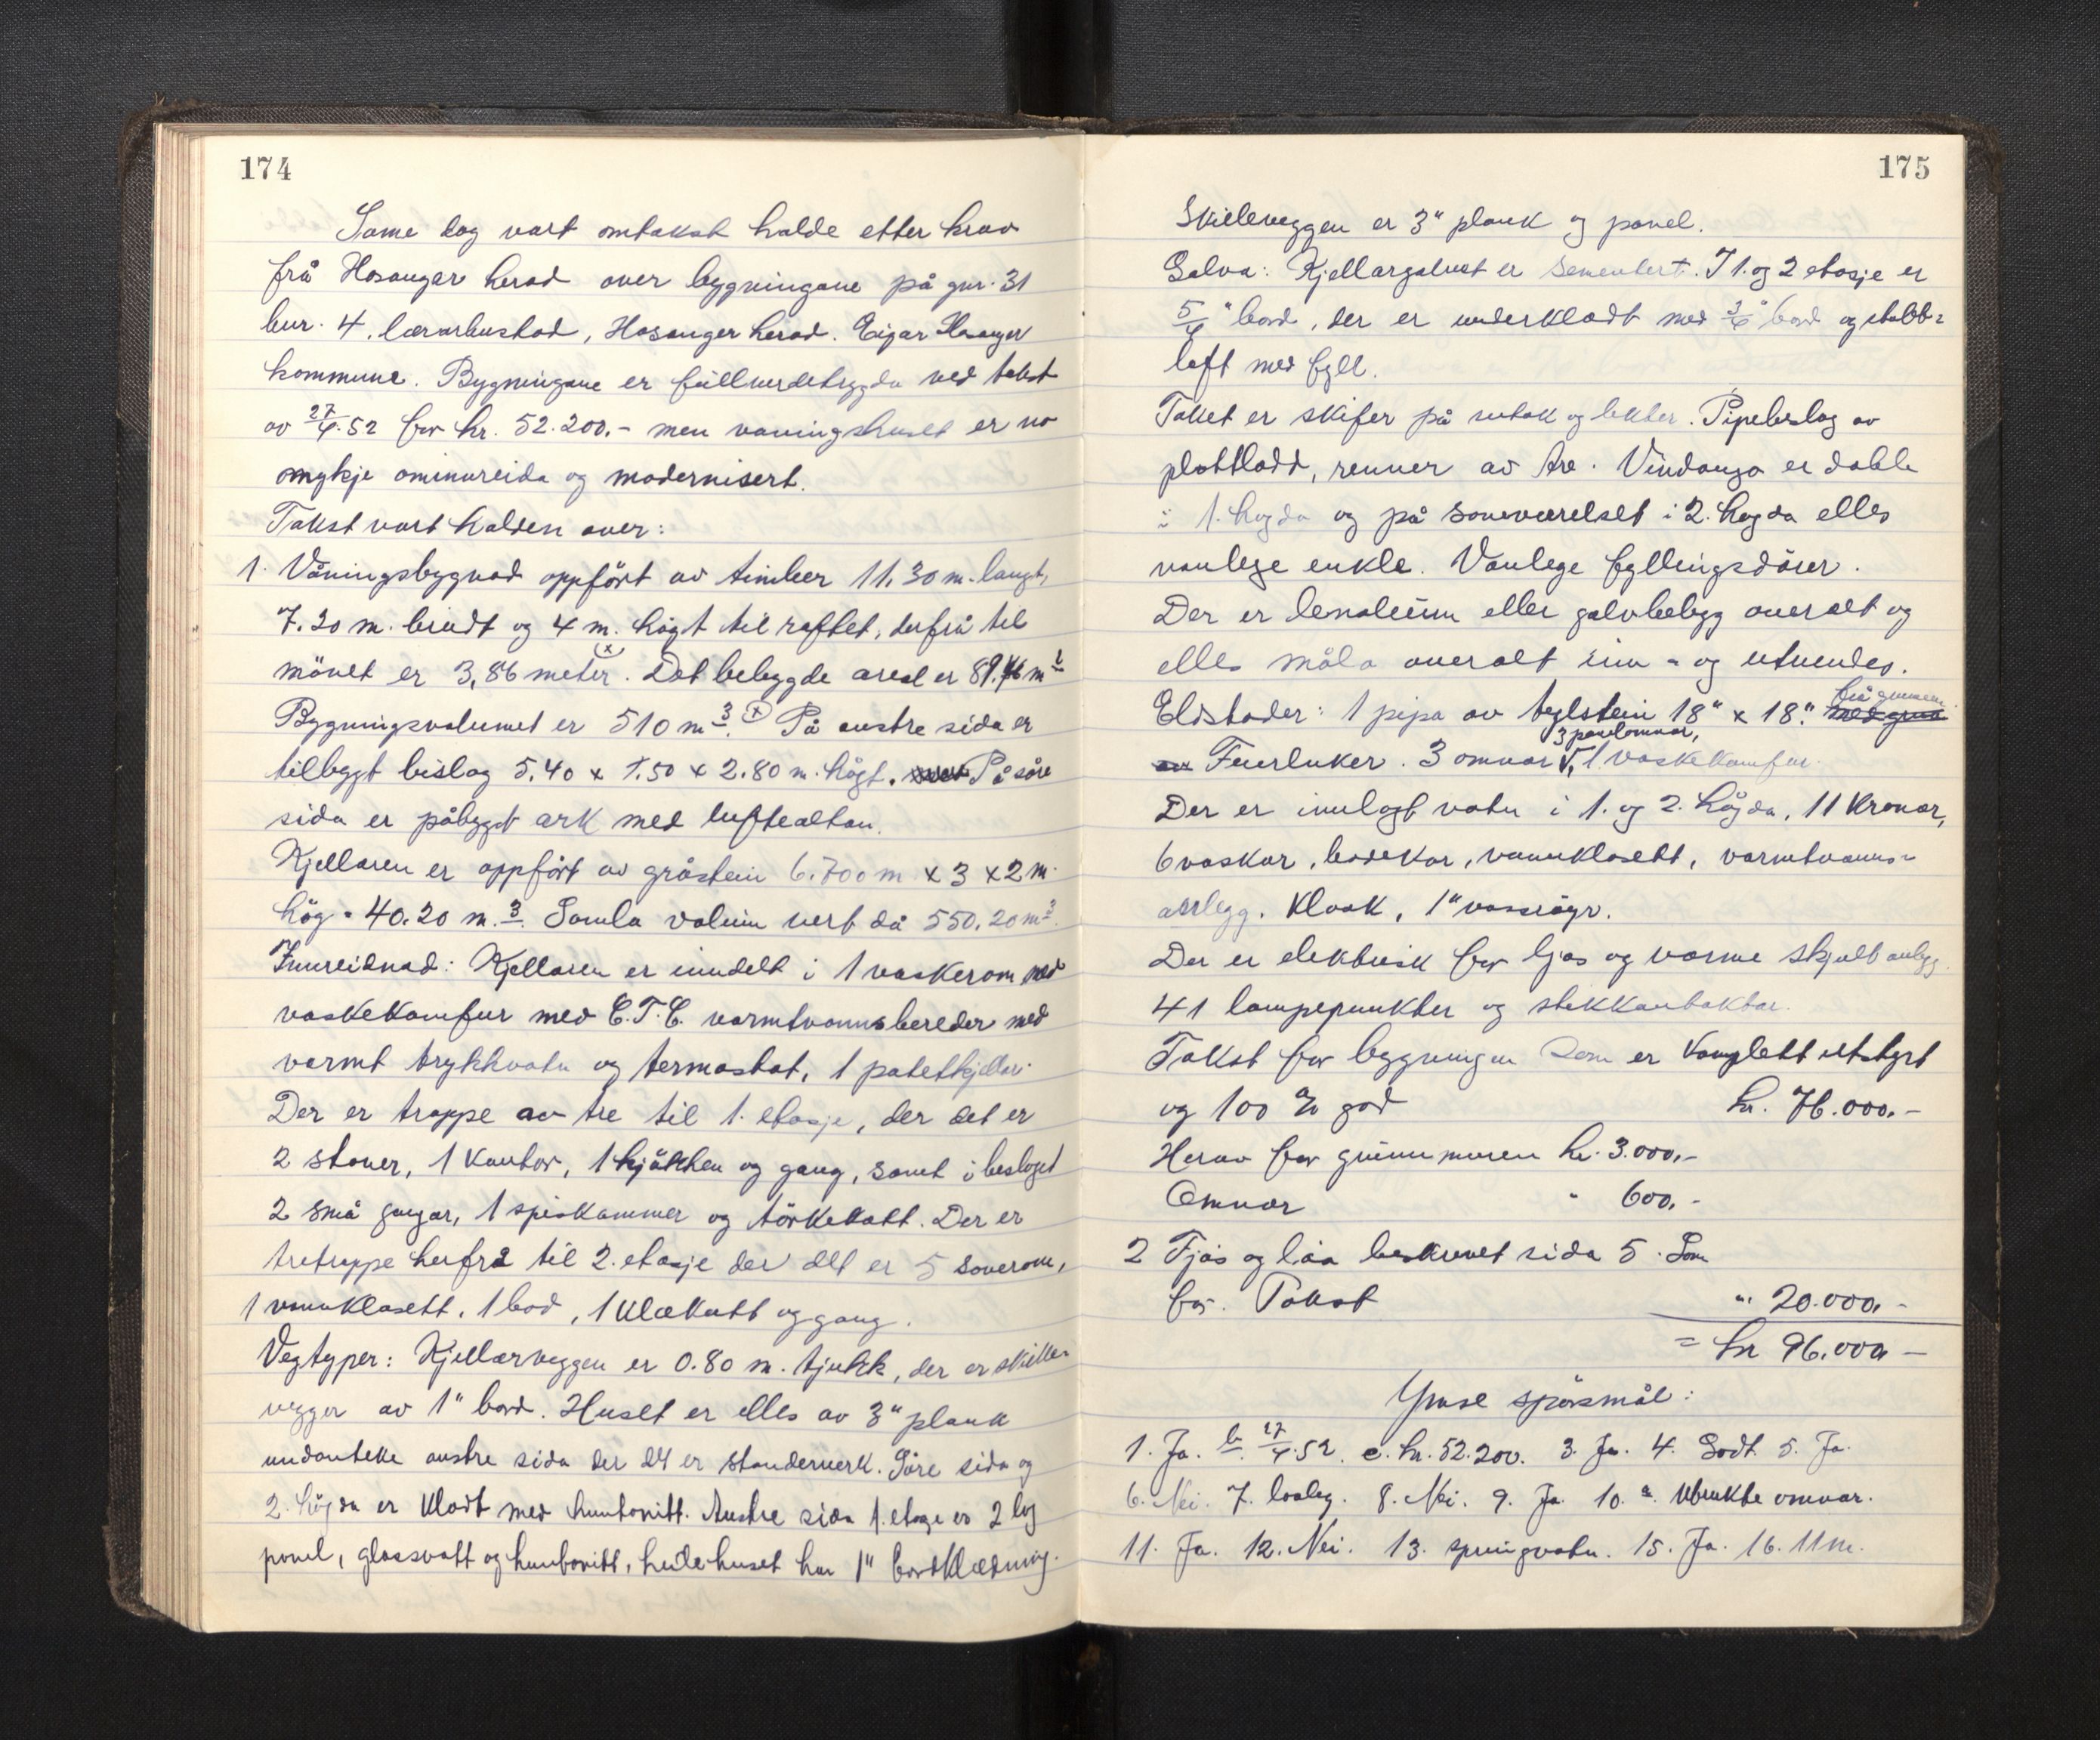 174
Same dag vart omtakst halde etter krav
frå Hosanger herad over bygningane på gnr. 31
bnr. 4, lærarbustad, Hosanger herad. Eigar Hosanger
kommune. Bygningane er fullverdetrygda ved takst
av 27/6.52 for kr. 52.200,- men våningshuset er no
mykje ominnreida og modernisert.
Takst vart halden over:
1. Våningsbygnad oppført av timber 11,30 m. langt,
7.20 m. breidt og 4 m. høgt til raftet, derfrå til
mønet er 3,86 meter. (x) Det bebygde areal er 89.46 m²
Bygningsvolumet er 510 m³. (x) På austre sida er
tilbygt bislag 5,40 x 1.50 x 2.80 m. høgt. På søre
sida er påbygt ark med luftealtan.
Kjellaren er oppført av gråstein 6.700 m x 3 x 2 m.
høg = 40.20 m.³. Samla volum vert då 550,20 m³.
Innreidnad: Kjellaren er inndelt i 1 vaskerom med
vaskekomfur med C.T.C. varmtvannsbereder med
varmt trykkvatn og termostat, 1 potetkjellar.
Der er trappe av tre til 1. etasje, der det er
2 stover, 1 kontor, 1 kjøkken og gang, samt i beslaget
2 små gangar, 1 spiskammer og tørkekott. Der er
tretrappe herfra til 2. etasje der det er 5 soverom,
1 vannklosett, 1 bod, 1 klækott og gang.
Vegtyper: Kjellarveggen er 0.80 m. tjukk, der er skille-
vegger av 1" bord. Huset er elles av 3" plank
undanteke austre sida der det er stenderverk. Søre sida og
2. høgda er klædt med huntonitt. Austre sida 1. etasje er 2 lag
panel, glassvatt og huntonitt, heile huset har 1" bordklædning.
175
Skilleveggen er 3" plank og panel.
Golva: Kjellargolvet er sementert. I 1. og 2 etasje er
5/4" bord, der er underklædt med 3/4" bord og stubb=
loft med fyll.
Taket er skifer på sutak og lekter. Pipebeslag av
plattladd, renner av tre. Vindauga er doble
i 1. høgda og på soveværelset i 2. høgda elles
vanlege enkle. Vanlege fyllingsdører.
Der er lenoleum eller golvbelegg overalt og
elles måla overalt inn- og utvendes.
Eldstader: 1 pipa av teglstein 18" x 18". frå grunnen
Feierluker. 3 omnar, 3 panelomnar, 1 vaskekomfur.
Der er innlagt vatn i 1. og 2. høgda, 11 kranar,
6 vaskar, badekar, vannklosett, varmtvanns-
anlegg. Kloak, 1" vassrøyr.
Der er elektrisk for ljos og varme skjult anlegg.
41 lampepunkter og stikkontaktar.
Takst for bygningen som er komplett utstyrt
og 100 % god kr. 76.000.-
Herav for grunnmuren kr. 3.000,-
Omnar " 600,-
2 Fjøs og løa beskrevet sida 5. Som
før. Takst " 20.000,-
= kr 96.000 -
Ymse spørsmål:
1. Ja. b. 27/6.52. c. kr. 52.200. 3. Ja. 4. Godt. 5. Ja.
6. Nei. 7. lovleg. 8. Nei. 9. Ja. 10. a. Ubrukte omnar.
11. Ja. 12. Nei. 13. springvatn. 15. Ja. 16. 11 m.